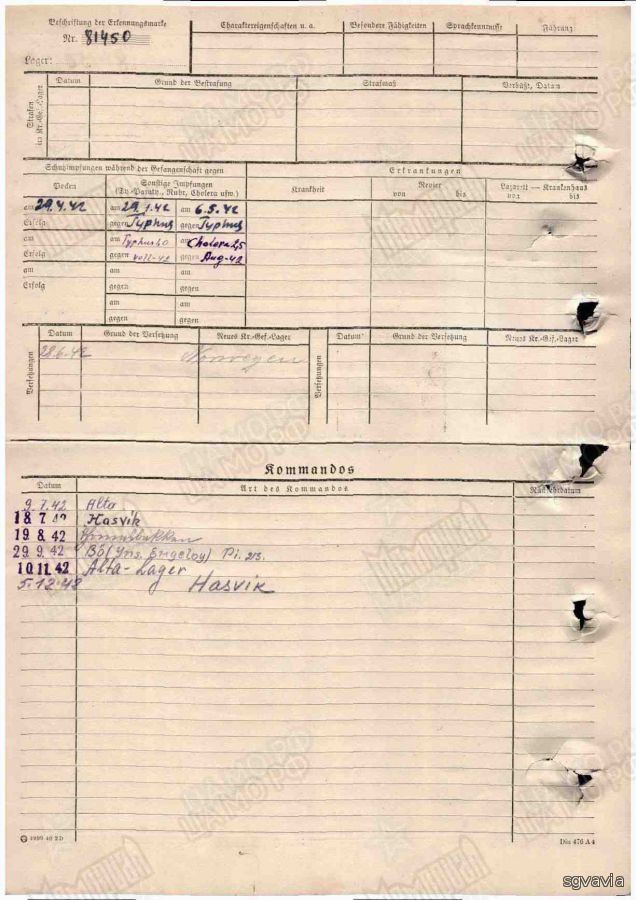 Beschriftung der Erkennungsmarke
Nr. 81450
Lager:
Charaktereigenschaften u. a.
Besondere Fähigkeiten
Sprachkenntnisse
Führung
Strafen im Kr.-Gef.-Lager
Datum
Grund der Bestrafung
Strafmaß
Verbüßt, Datum
Schutzimpfungen während der Gefangenschaft gegen
Erkrankungen
Pocken
Sonstige Impfungen
(Ty.-Paraty., Ruhr, Cholera usw.)
Krankheit
Revier
von bis
Lazarett — Krankenhaus
von bis
am 29.4.42 am 29.1.42 am 6.5.42
Erfolg gegen Typhus gegen Typhus
am am Typhus am Cholera 25
Erfolg gegen gegen Aug-42
am am am
Erfolg gegen gegen
am am
gegen gegen
Versetzungen
Datum
Grund der Versetzung
Neues Kr.-Gef.-Lager
Versetzungen
Datum
Grund der Versetzung
Neues Kr.-Gef.-Lager
28.6.42 Norwegen
Kommandos
Datum
Art des Kommandos
9.7.42 Alta
18 7 42 Hasvik
19 8 42
29 9. 42 Bö (Ins. Engeloy) Pi. 213.
10.11.42 Alta-Lager
5.12.42 Hasvik
Din 476 A 4
ЦАМО РФ
ПАМЯТИ
sgvavia